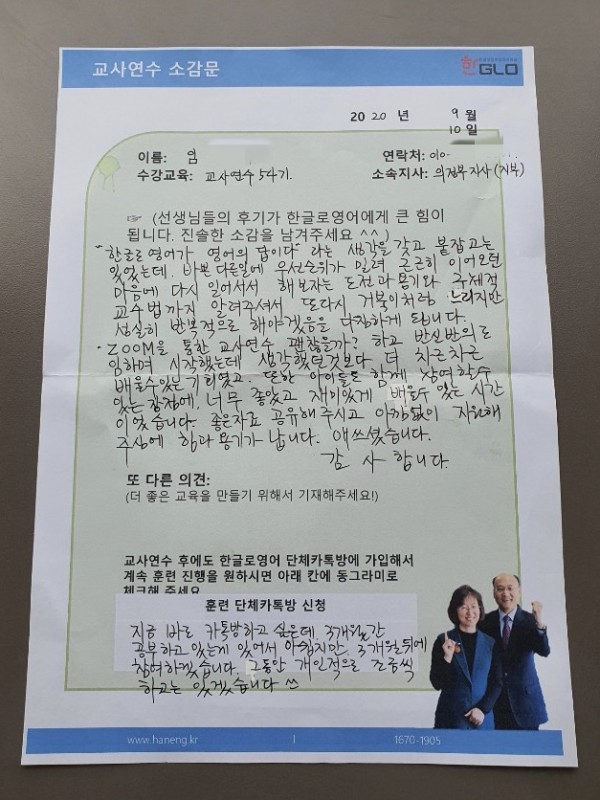 교사연수 소감문
한GLO
2020 년 9월
10일
이름: 엄
연락처: 010-
수강교육: 교사연수 54기.
소속지사: 의정부지사(지부)
☞ (선생님들의 후기가 한글로영어에게 큰 힘이
됩니다. 진솔한 소감을 남겨주세요 ^^)
- "한글로영어가 영어의 답이다" 라는 생각을 갖고 붙잡고는
있었는데. 바쁜 다른일에 우선순위가 밀려 근근히 이어오던
마음에 다시 일어서서 해보자는 도전과 용기와 구체적
교수법까지 알려주셔서 또다시 거북이처럼 느리지만
성실히 반복적으로 해야겠음을 다짐하게 됩니다.
- ZOOM을 통한 교사연수 괜찮을까? 하고 반신반의로
임하며 시작했는데 생각했던것보다 더 차근차근
배울수있는 기회였고. 또한 아이들도 함께 참여할수
있는 광장에, 너무 좋았고 재미있게 배울수 있는 시간
이었습니다. 좋은자료 공유해주시고 아낌없이 지원해
주심에 힘과 용기가 납니다. 애쓰셨습니다.
감사합니다.
또 다른 의견:
(더 좋은 교육을 만들기 위해서 기재해주세요!)
교사연수 후에도 한글로영어 단체카톡방에 가입해서
계속 훈련 진행을 원하시면 아래 칸에 동그라미로
체크해 주세요
훈련 단체카톡방 신청
지금 바로 카톡방하고 싶은데, 3개월간
공부하고 있는게 있어서 아쉽지만, 3개월뒤에
참여하겠습니다. 그동안 개인적으로 조금씩
하고는 있겠습니다
www.haneng.kr
1670-1905